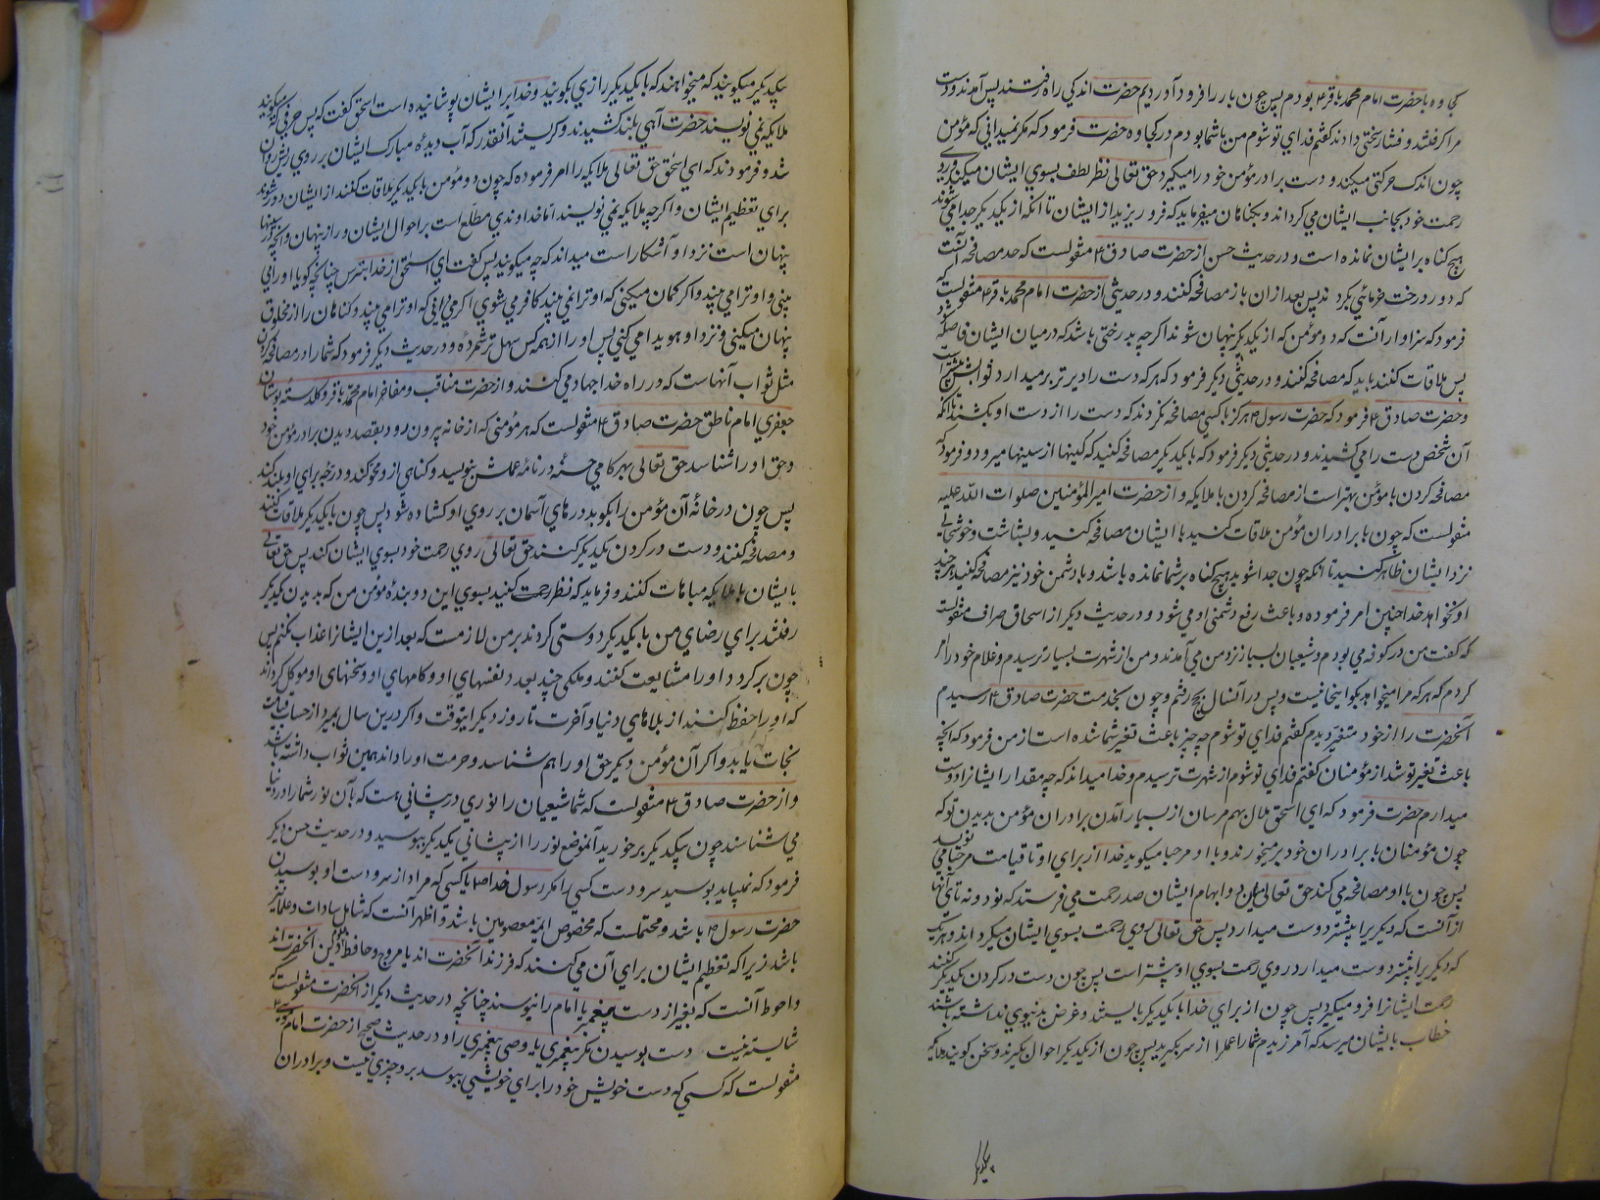 کجاوه با حضرت امام محمد باقر ع بودم پس چون بار را فرود آوردیم حضرت اندکی راه رفتند پس آمدند و دست
مرا گرفتند و فشار سختی دادند گفتم فدای تو شوم من با شما بودم در کجاوه حضرت فرمود که مگر نمیدانی که مؤمن
چون اندک حرکتی میکند و دست برادر مؤمن خود را میگیرد حق تعالی نظر لطف بسوی ایشان میکند و روی
رحمت خود بجانب ایشان می گرداند و بگناهان میفرماید که فرو ریزید از ایشان تا آنکه از یکدیگر جدا می شوند
هیچ گناه بر ایشان نمانده است و در حدیث حسن از حضرت صادق ع منقولست که حد مصافحه آنست
که دور درخت خرمائی بگردند پس بعد ازان باز مصافحه کنند و در حدیثی از حضرت امام محمد باقر ع منقولست که
فرمود که سزاوار آنست که دو مؤمن که از یکدیگر پنهان شوند اگرچه بدرختی باشد که در میان ایشان فاصله شود
پس ملاقات کنند باید که مصافحه کنند و در حدیثی دیگر فرمود که هر که دست را دیرتر بر میدارد ثوابش بیشتر است
و حضرت صادق ع فرمود که حضرت رسول ص هرگز با کسی مصافحه نکردند که دست را از دست او بکشند بلکه
آن شخص دست را می کشیدند و در حدیثی دیگر فرمود که با یکدیگر مصافحه کنید که کینها از سینها میرود و فرمود که
مصافحه کردن با مؤمن بهتر است از مصافحه کردن با ملایکه و از حضرت امیر المؤمنین صلوات الله علیه
منقولست که چون با برادران مؤمن ملاقات کنید با ایشان مصافحه کنید و بشاشت و خوشحالی
نزد ایشان ظاهر کنید تا آنکه چون جدا شوید هیچ گناه بر شما نمانده باشد و با دشمن خود نیز مصافحه کنید هر چند
او نخواهد خدا چنین امر فرموده و باعث رفع دشمنی او می شود و در حدیث دیگر از اسحاق صراف منقولست
که گفت من در کوفه می بودم و شیعیان بسیار نزد من می آمدند و من از شهرت بسیار ترسیدم و غلام خود را امر
کردم که هر که مرا میخواهد بگو اینجا نیست و پس در آنسال بحج رفتم و چون بخدمت حضرت صادق ع رسیدم
آنحضرت را از خود متغیر دیدم گفتم فدای تو شوم چه چیز باعث تغیر شما شده است از من فرمود که آنچه
باعث تغیر تو شد از مؤمنان گفتم فدای تو شوم از شهرت ترسیدم و خدا میداند که چه مقدار ایشانرا دوست
میدارم حضرت فرمود که ای اسحق ملال بهم مرسان از بسیار آمدن برادران مؤمن بدیدن تو که
چون مؤمنان با برادران خود بر میخورند و با او مرحبا میگوید خدا از برای او تا قیامت مرحبا می نویسد
پس چون با او مصافحه می کند حق تعالی میان دو ابهام ایشان صد رحمت می فرستد که نود و نه تای آنها
از آنست که دیگری را بیشتر دوست میدارد پس حق تعالی روی رحمت بسوی ایشان میگرداند و هر یک
که دیگری را بیشتر دوست میدارد روی رحمت بسوی او بیشتر است پس چون دست در گردن یکدیگر کنند
رحمت ایشانرا فرو میگیرد پس چون از برای خدا با یکدیگر بایستند و غرض بدنیوی نداشته باشند
خطاب بایشان میرسد که آمرزیدم شما را عمل را از سر بگیرید پس چون از یکدیگر احوال بگیرند و سخن گویند ملایکه
بیکدیگر
بیکدیگر میگویند که میخواهند که با یکدیگر رازی بگویند و خدا بر ایشان پوشانیده است اسحق گفت که پس حرفی که میگویند
ملایکه نمی نویسند حضرت آهی بلند کشیدند و گریستند آنقدر که آب دیدهٔ مبارک ایشان بر روی ریش روان
شد و فرمودند که ای اسحق حق تعالی ملایکه را امر فرموده که چون دو مؤمن با یکدیگر ملاقات کنند از ایشان دور شوند
برای تعظیم ایشان و اگرچه ملایکه نمی نویسند اما خداوندی مطلع است بر احوال ایشان و راز پنهان و آنچه در سینها
پنهان است نزد او آشکار است میداند که چه میگویند پس گفت ای اسحق از خدا بترس چنانچه گویا او را می
بینی و او ترا می بیند و اگر گمان میکنی که او ترا نمی بیند کافر می شوی اگر می دانی که او ترا می بیند و گناهان را از مخلوق
پنهان میکنی و نزد او هویدا می کنی پس او را از همه کس سهل تر شمرده و در حدیث دیگر فرمود که شما را در مصافحه کردن
مثل ثواب آنهاست که در راه خدا جهاد می کنند و از حضرت مناقب و مفاخر امام محمد باقر و گلدسته بوستان
جعفری امام ناطق حضرت صادق ع منقولست که هر مؤمنی که از خانه بیرون رود بقصد دیدن برادر مؤمن خود
و حق او را شناسد حق تعالی بهر گامی حسنه در نامهٔ عملش بنویسد و گناهی ازو محو کند و درجه برای او بلند کند
پس چون در خانهٔ آن مؤمن را بکوبد درهای آسمان بر روی او گشاده شود پس چون با یکدیگر ملاقات کنند
و مصافحه کنند و دست در گردن یکدیگر کنند حق تعالی روی رحمت خود بسوی ایشان کند پس حق تعالی
بایشان با ملایکه مباهات کنند و فرماید که نظر رحمت کنید بسوی این دو بندهٔ مؤمن من که بدیدن یکدیگر
رفتند برای رضای من با یکدیگر دوستی کردند بر من لازمست که بعد ازین ایشانرا عذاب نکنم پس
چون بر گردد او را مشایعت کنند و ملکی چند بعدد نفسهای او و گامهای او و سخنهای او موکل گرداند
که او را حفظ کنند از بلاهای دنیا و آخرت تا روز دیگر اینوقت و اگر درین سال بمیرد از حساب قیامت
نجات یابد و اگر آن مؤمن دیگر حق او را هم شناسد و حرمت او را داند همین ثواب داشته باشد
و از حضرت صادق ع منقولست که شما شیعیان را نوری در پیشانی هست که بآن نور شما را در دنیا
می شناسند چون بیکدیگر بر خورید آنموضع نور را از پیشانی یکدیگر ببوسید و در حدیث حسن دیگر
فرمود که نمیباید بوسید سر و دست کسی را مگر رسول خدا ص یا کسی که مراد از سر و دست او بوسیدن
حضرت رسول ص باشد و محتملست که مخصوص ایمه معصومین باشد و اظهر آنست که شامل سادات و علما نیز
باشد زیرا که تعظیم ایشان برای آن می کنند که فرزند آنحضرت اند یا مروج و حافظ دین آنحضرت اند
و احوط آنست که بغیر از دست پیغمبر یا امام را نبوسند چنانچه در حدیث دیگر از آنحضرت منقولست که
شایسته نیست دست بوسیدن مگر پیغمبری یا وصی پیغمبری را و در حدیث صحیح از حضرت امام موسی ع
منقولست که کسی که دست خویش خود را برای خویشی ببوسد برو چیزی نیست و برادران